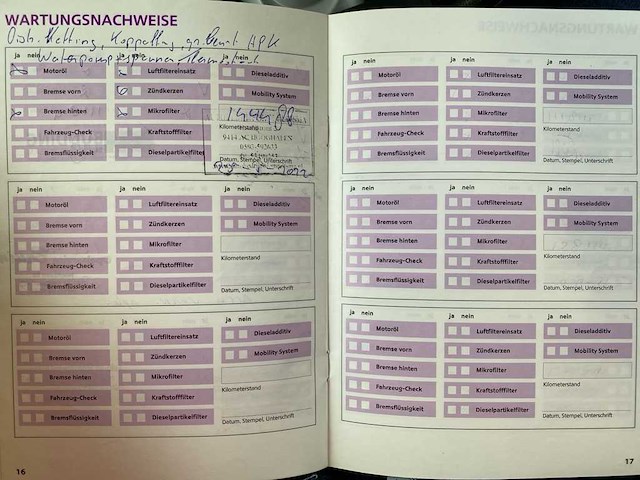 WARTUNGSNACHWEISE
ja nein
Motoröl
Bremse vorn
Bremse hinten
Fahrzeug-Check
Bremsflüssigkeit
Luftfiltereinsatz
Zündkerzen
Mikrofilter
Kraftstofffilter
Dieselpartikelfilter
Dieseladditiv
Mobility System
Kilometerstand
Datum, Stempel, Unterschrift
ja nein
ja nein
ja nein
Motoröl
Bremse vorn
Bremse hinten
Fahrzeug-Check
Bremsflüssigkeit
Luftfiltereinsatz
Zündkerzen
Mikrofilter
Kraftstofffilter
Dieselpartikelfilter
Dieseladditiv
Mobility System
Kilometerstand
Datum, Stempel, Unterschrift
ja nein
ja nein
ja nein
Motoröl
Bremse vorn
Bremse hinten
Fahrzeug-Check
Bremsflüssigkeit
Luftfiltereinsatz
Zündkerzen
Mikrofilter
Kraftstofffilter
Dieselpartikelfilter
Dieseladditiv
Mobility System
Kilometerstand
Datum, Stempel, Unterschrift
16
ja nein
ja nein
ja nein
Motoröl
Bremse vorn
Bremse hinten
Fahrzeug-Check
Bremsflüssigkeit
Luftfiltereinsatz
Zündkerzen
Mikrofilter
Kraftstofffilter
Dieselpartikelfilter
Dieseladditiv
Mobility System
Kilometerstand
Datum, Stempel, Unterschrift
ja nein
ja nein
ja nein
Motoröl
Bremse vorn
Bremse hinten
Fahrzeug-Check
Bremsflüssigkeit
Luftfiltereinsatz
Zündkerzen
Mikrofilter
Kraftstofffilter
Dieselpartikelfilter
Dieseladditiv
Mobility System
Kilometerstand
Datum, Stempel, Unterschrift
ja nein
ja nein
ja nein
Motoröl
Bremse vorn
Bremse hinten
Fahrzeug-Check
Bremsflüssigkeit
Luftfiltereinsatz
Zündkerzen
Mikrofilter
Kraftstofffilter
Dieselpartikelfilter
Dieseladditiv
Mobility System
Kilometerstand
Datum, Stempel, Unterschrift
17